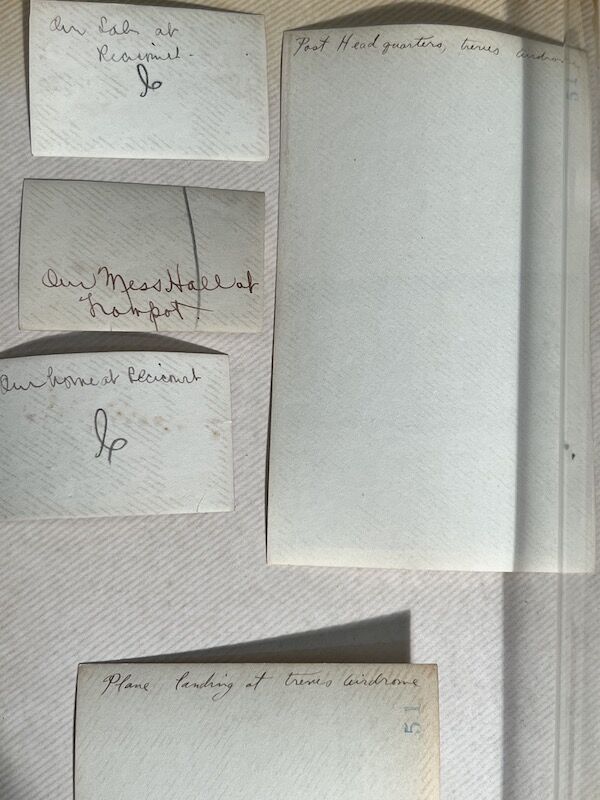 Our Lab at
Recicourt.
Post Headquarters, treves airdro
51
Our Mess Hall at
Our home at Recicourt
Plane landing at treves airdrome
51